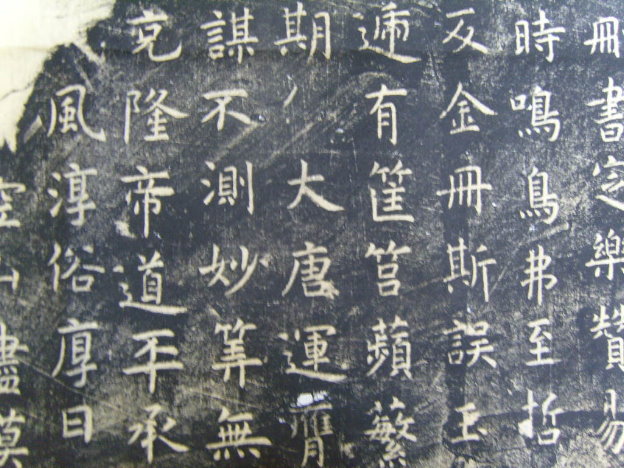 刪書定樂贊易
時鳴鳥弗至哲
及金冊斯誤玉
遞有筐筥蘋蘩
期大唐運膺
謀不測妙筭無
克隆帝道平承
風淳俗厚日
空山盡漠